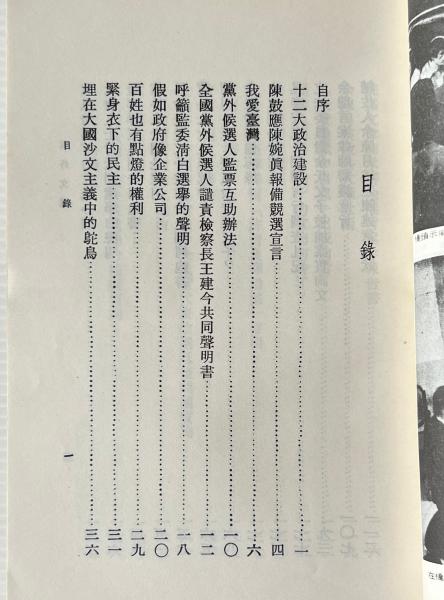 目錄
自序
十二大政治建設⋯⋯一
陳鼓應陳婉眞報備競選宣言⋯⋯四
我愛臺灣⋯⋯六
黨外候選人監票互助辦法⋯⋯一〇
全國黨外候選人譴責檢察長王建今共同聲明書⋯⋯一二
呼籲監委淸白選舉的聲明⋯⋯一八
假如政府像企業公司⋯⋯二〇
百姓也有點燈的權利⋯⋯二九
緊身衣下的民主⋯⋯三一
埋在大國沙文主義中的鴕鳥⋯⋯三六
目錄
一